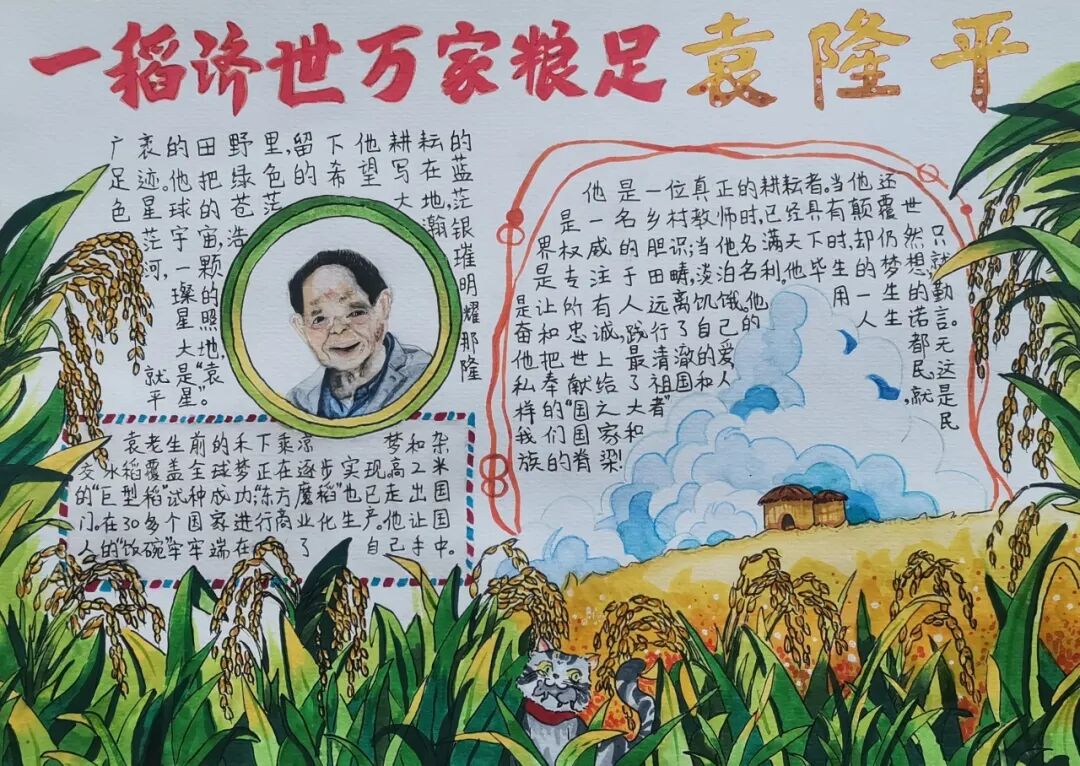 一稻济世万家粮足 袁隆平
广袤的田野里,留下他耕耘的
足迹。他把绿色的希望写在蓝
色星球的苍茫大地,茫
茫宇宙,浩瀚银
河,一颗璀
璨的明
星照耀
大地,那
就是“袁隆
平星”。
袁老生前的禾下乘凉梦和杂
交水稻覆盖全球梦正在逐步实现。高2米
的“巨型稻”试种成功“东方魔稻”也已走出国
门,在30多个国家进行商业化生产。他让国
人的“饭碗”牢牢端在了自己手中。
他是一位真正的耕耘者。当他还
是一名乡村教师时,已经具有颠覆世
界权威的胆识;当他名满天下时,却仍然只
是专注于田畴,淡泊名利。他毕生的梦想,就
是让所有人远离饥饿。他用一生的勤
奋和忠诚,践行了自己的人生诺言。
他把世上最清澈的爱都无
私奉献给了祖国和人民,这
样的“国之大者”就是
我们国家和民
族的脊梁!